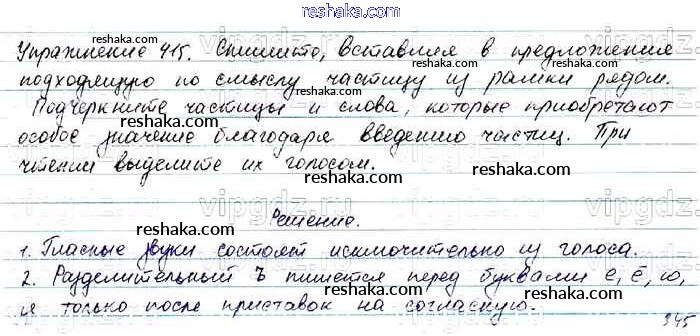 reshaka.com
reshaka.com
Упражнение 415. Спишите, вставляя в предложения
подходящую по смыслу частицу из рамки рядом.
Подчеркните частицы и слова, которые приобретают
reshaka.com
особое значение благодаря введению частиц. При
vipgdz.ru
чтении выделите их голосом.
reshaka.com
vipgdz.ru
Решение.
reshaka.com
1. Гласные звуки состоят исключительно из голоса.
2. Разделительный ъ пишется перед буквами е, ё, ю,
я только после приставок на согласную.
reshaka.com
345